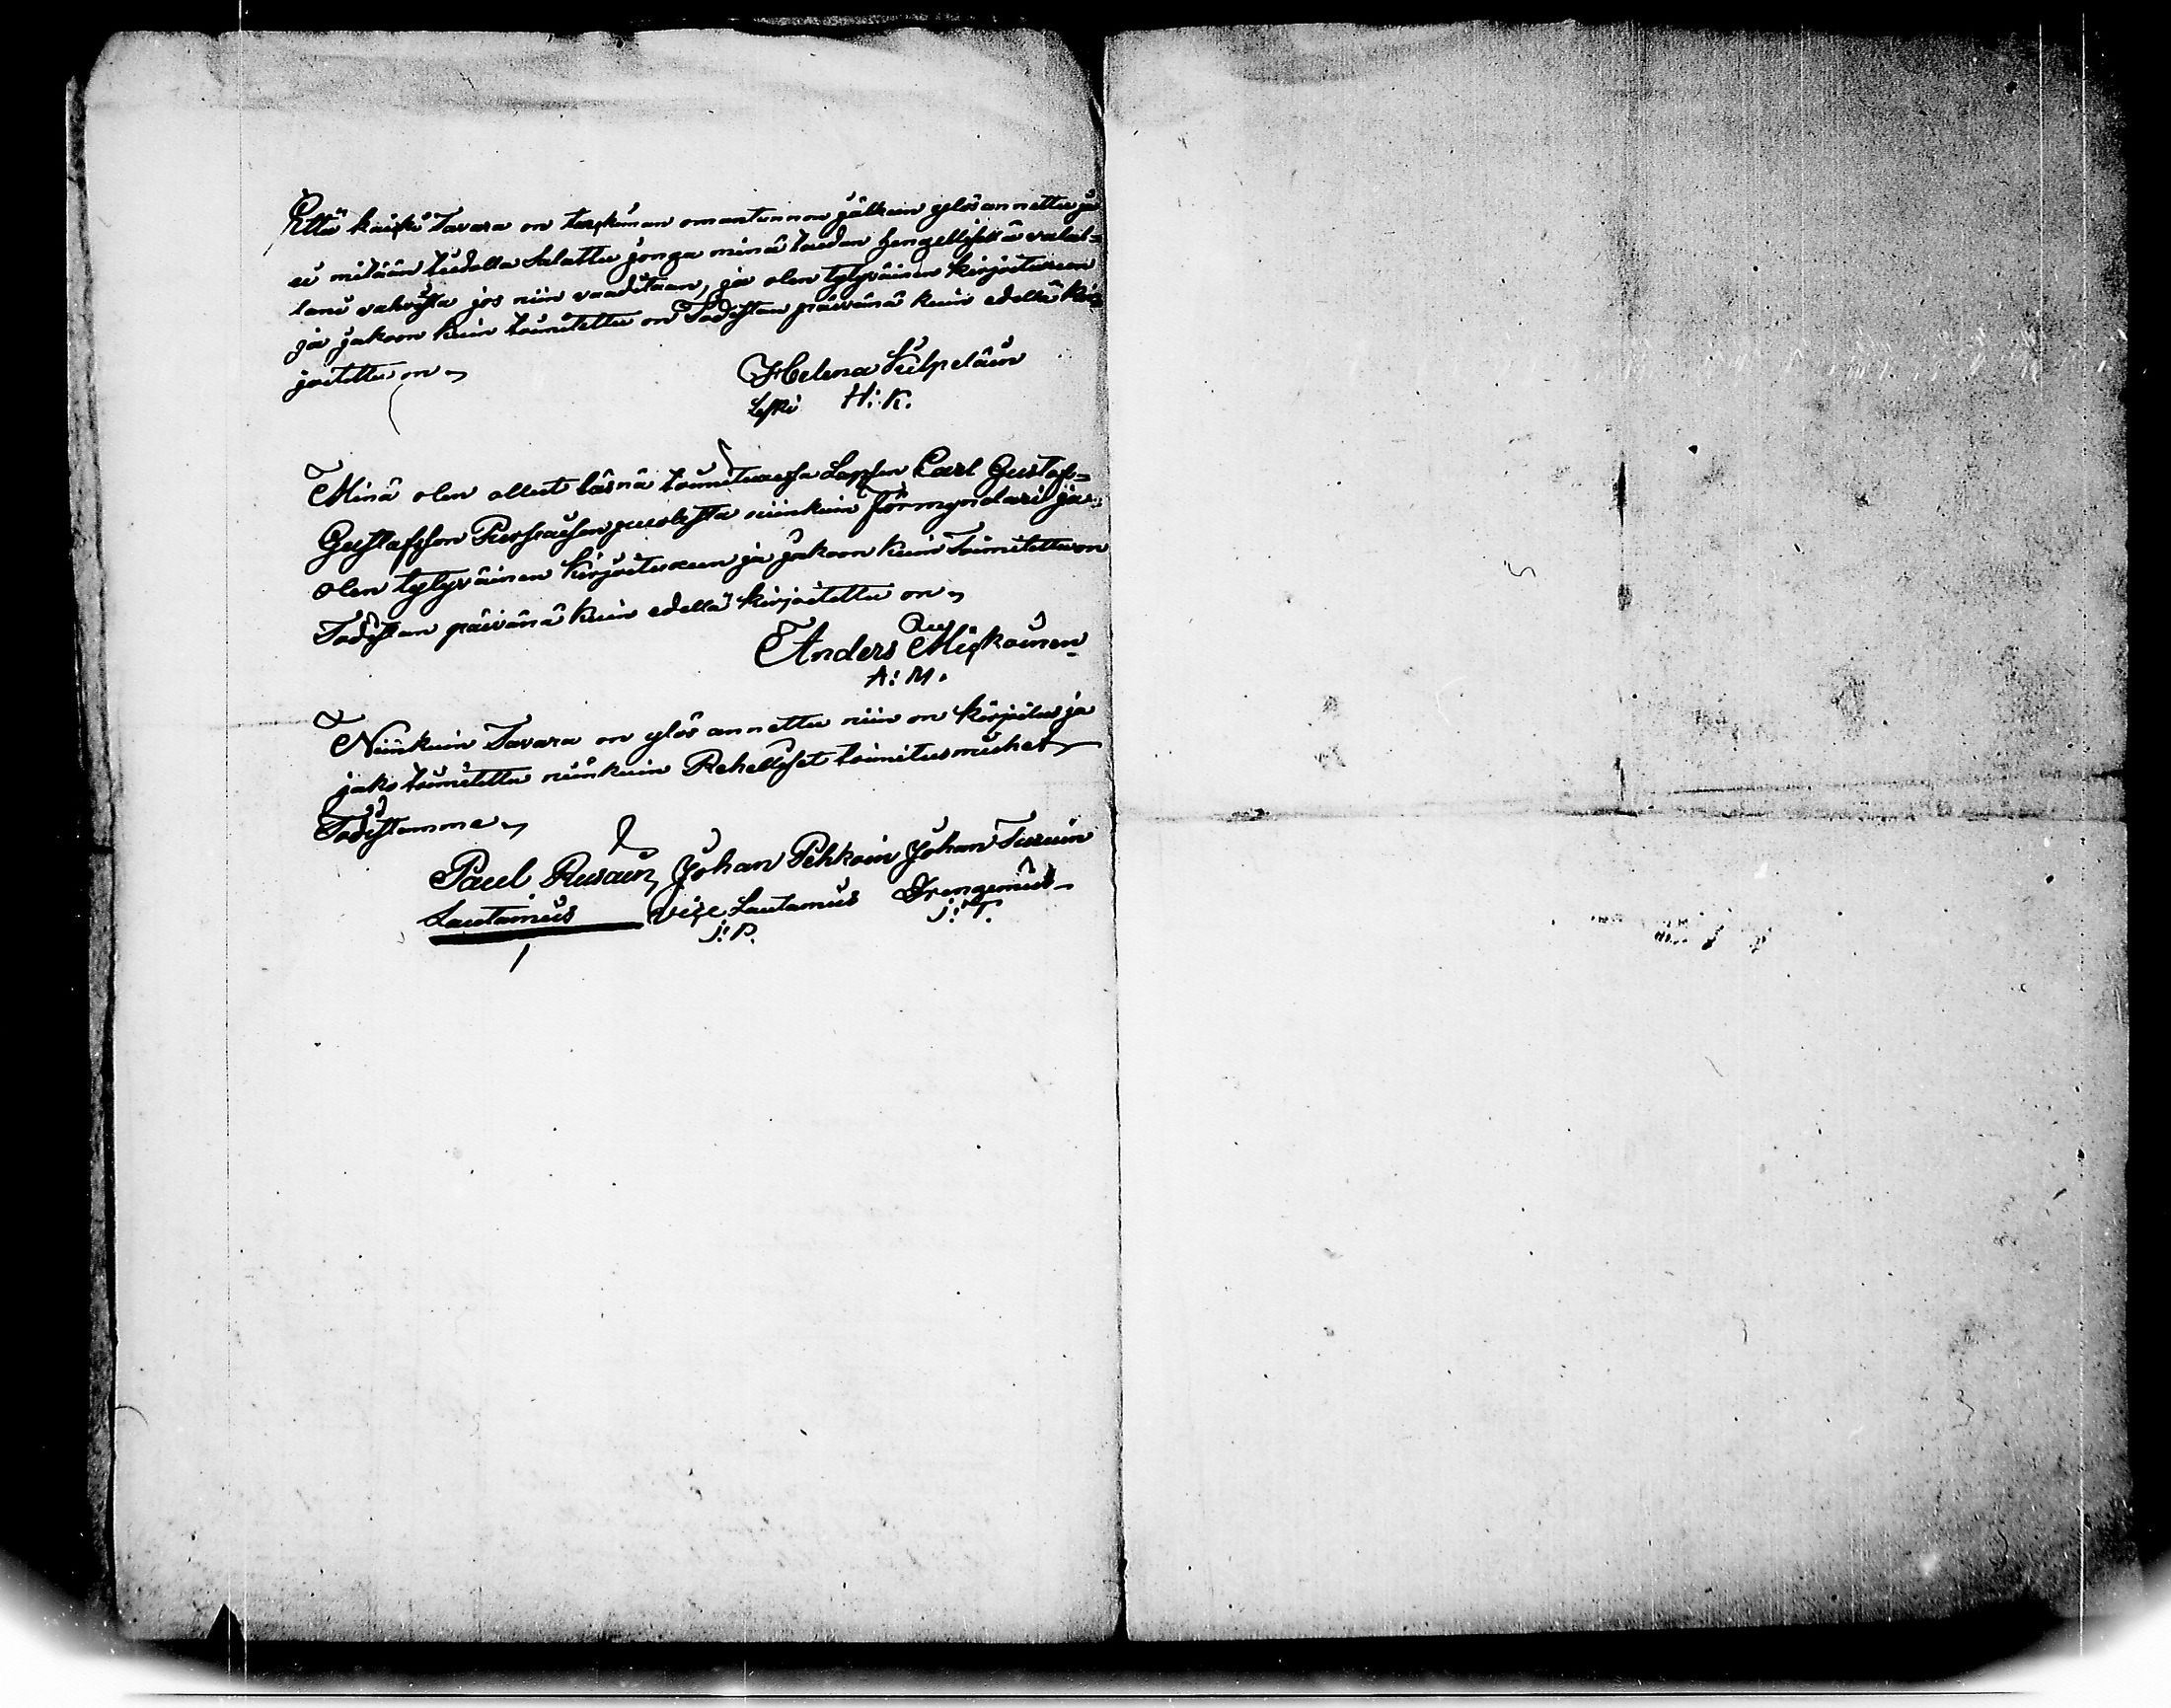 Että kaikki Tavara on tarkiman omantunnon jälkein ylösannettu ja
ei mitään tiedolla Salattu jonga minä taidan hengellisellä valal-
lani vahvista jos niin vaaditaan, ja olen tytyväinen kirjoituxeen
ja jakoon kuin toimitettu on Todistan päivänä kuin edellä kir-
joitettu on
Helena Kilpeläin
Leski H: K.
Minä olen ollut läsnä toimituxessa Lapsen Carl Gustaf-
Gustafsson Pursiaisen puolesta niinkuin Förmyndari ja
olen tytyväinen kirjoituxeen ja jakoon kuin Toimitettu on
Todistan päivänä kuin edellä kirjoitettu on
Anders Miskoinen
A: M.
Niinkuin Tavara on ylös annettu niin on kirjoitu ja
jako toimitettu niinkuin Rehelliset toimitusmiehet
Todistamme
Paul Rusain Johan Pehkoin Johan Turuin
Lautamies Vise Lautamies Drengimies
J: P. J: T.